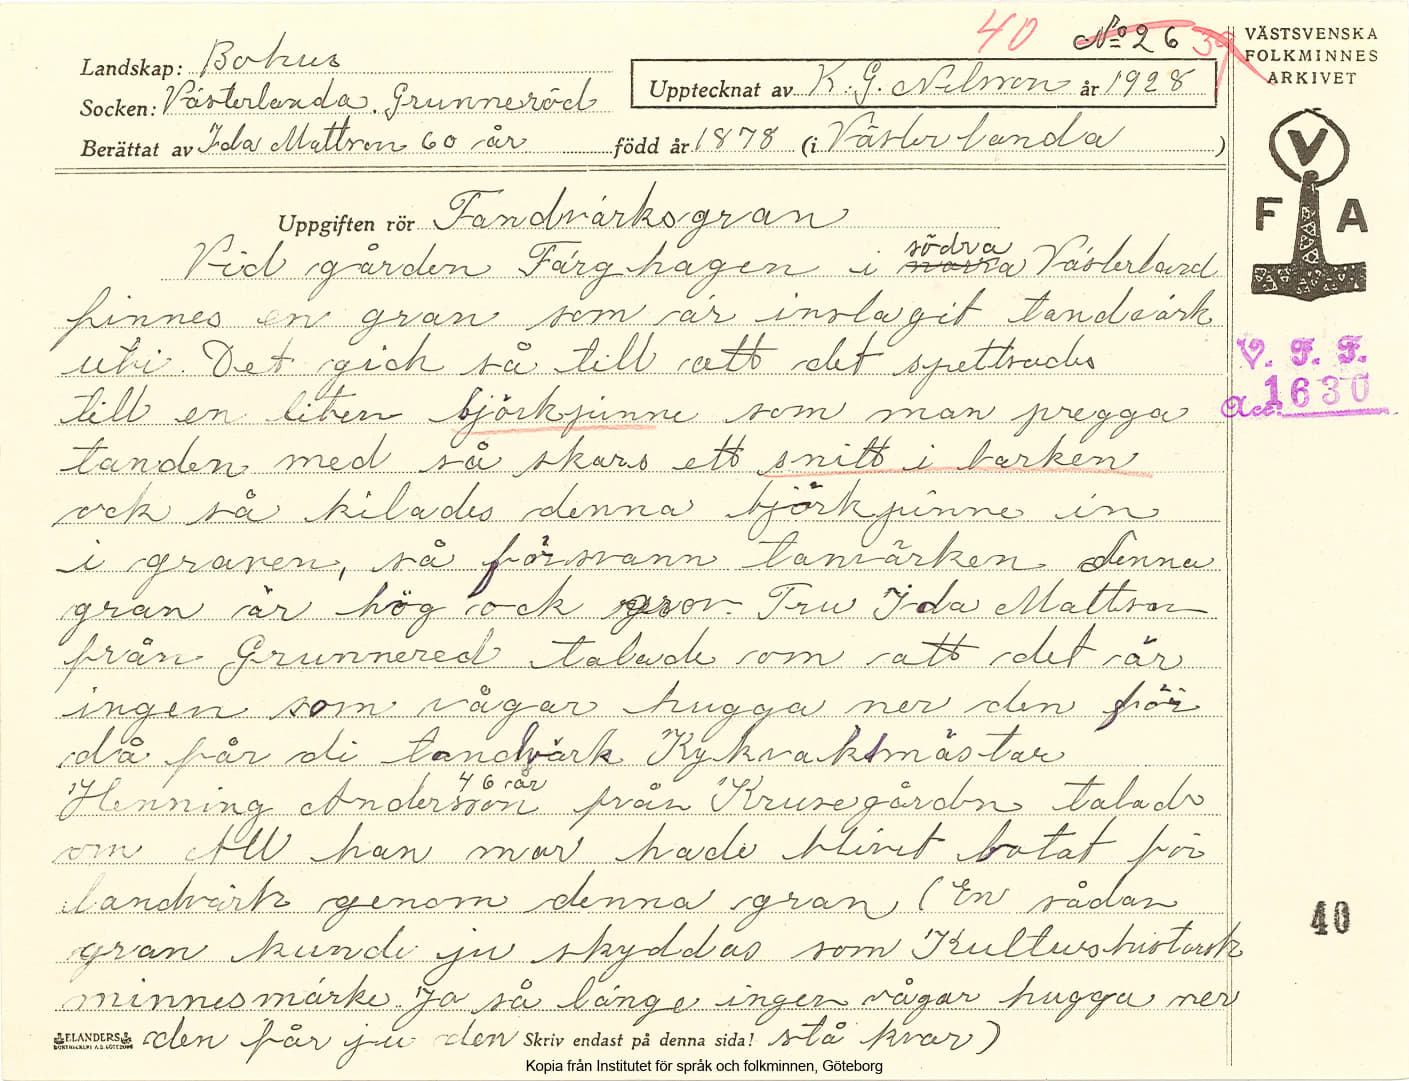 40 No 26 39
VÄSTSVENSKA
FOLKMINNES
ARKIVET
Landskap: Bohus
Upptecknat av K. G. Nilsson år 1928
Socken: Västerlanda. Grunneröd
Berättat av Ida Mattson 60 år född år 1878 (i Västerlanda)
V F A
Uppgiften rör Tandvärksgran
södra
Vid gården Färghagen i norra Västerland
finnes en gran som är inslagit tandvärk
uti. Det gick så till att det spettsades
till en liten björkpinne som man pregga
tanden med så skars ett snitt i barken
ock så kilades denna björkpinne in
i graven, så försvann tanvärken denna
gran är hög ock grov. Fru Ida Mattson
från Grunnered talade om att det är
ingen som vågar hugga ner den för
då får di tandvärk Kykvaktmästar
46 år
Henning Andersson från Krusegården talade
om att han mor hade blivit botat för
tandvärk genom denna gran (En sådan
gran kunde ju skyddas som Kulturshistorisk
minnesmärke. Ja så länge ingen vågar hugga ner
den får ju den stå kvar)
ELANDERS
BOKTRYCKERI A.B. GÖTEBORG
Skriv endast på denna sida!
V. F. F.
Acc. 1630
40
Kopia från Institutet för språk och folkminnen, Göteborg